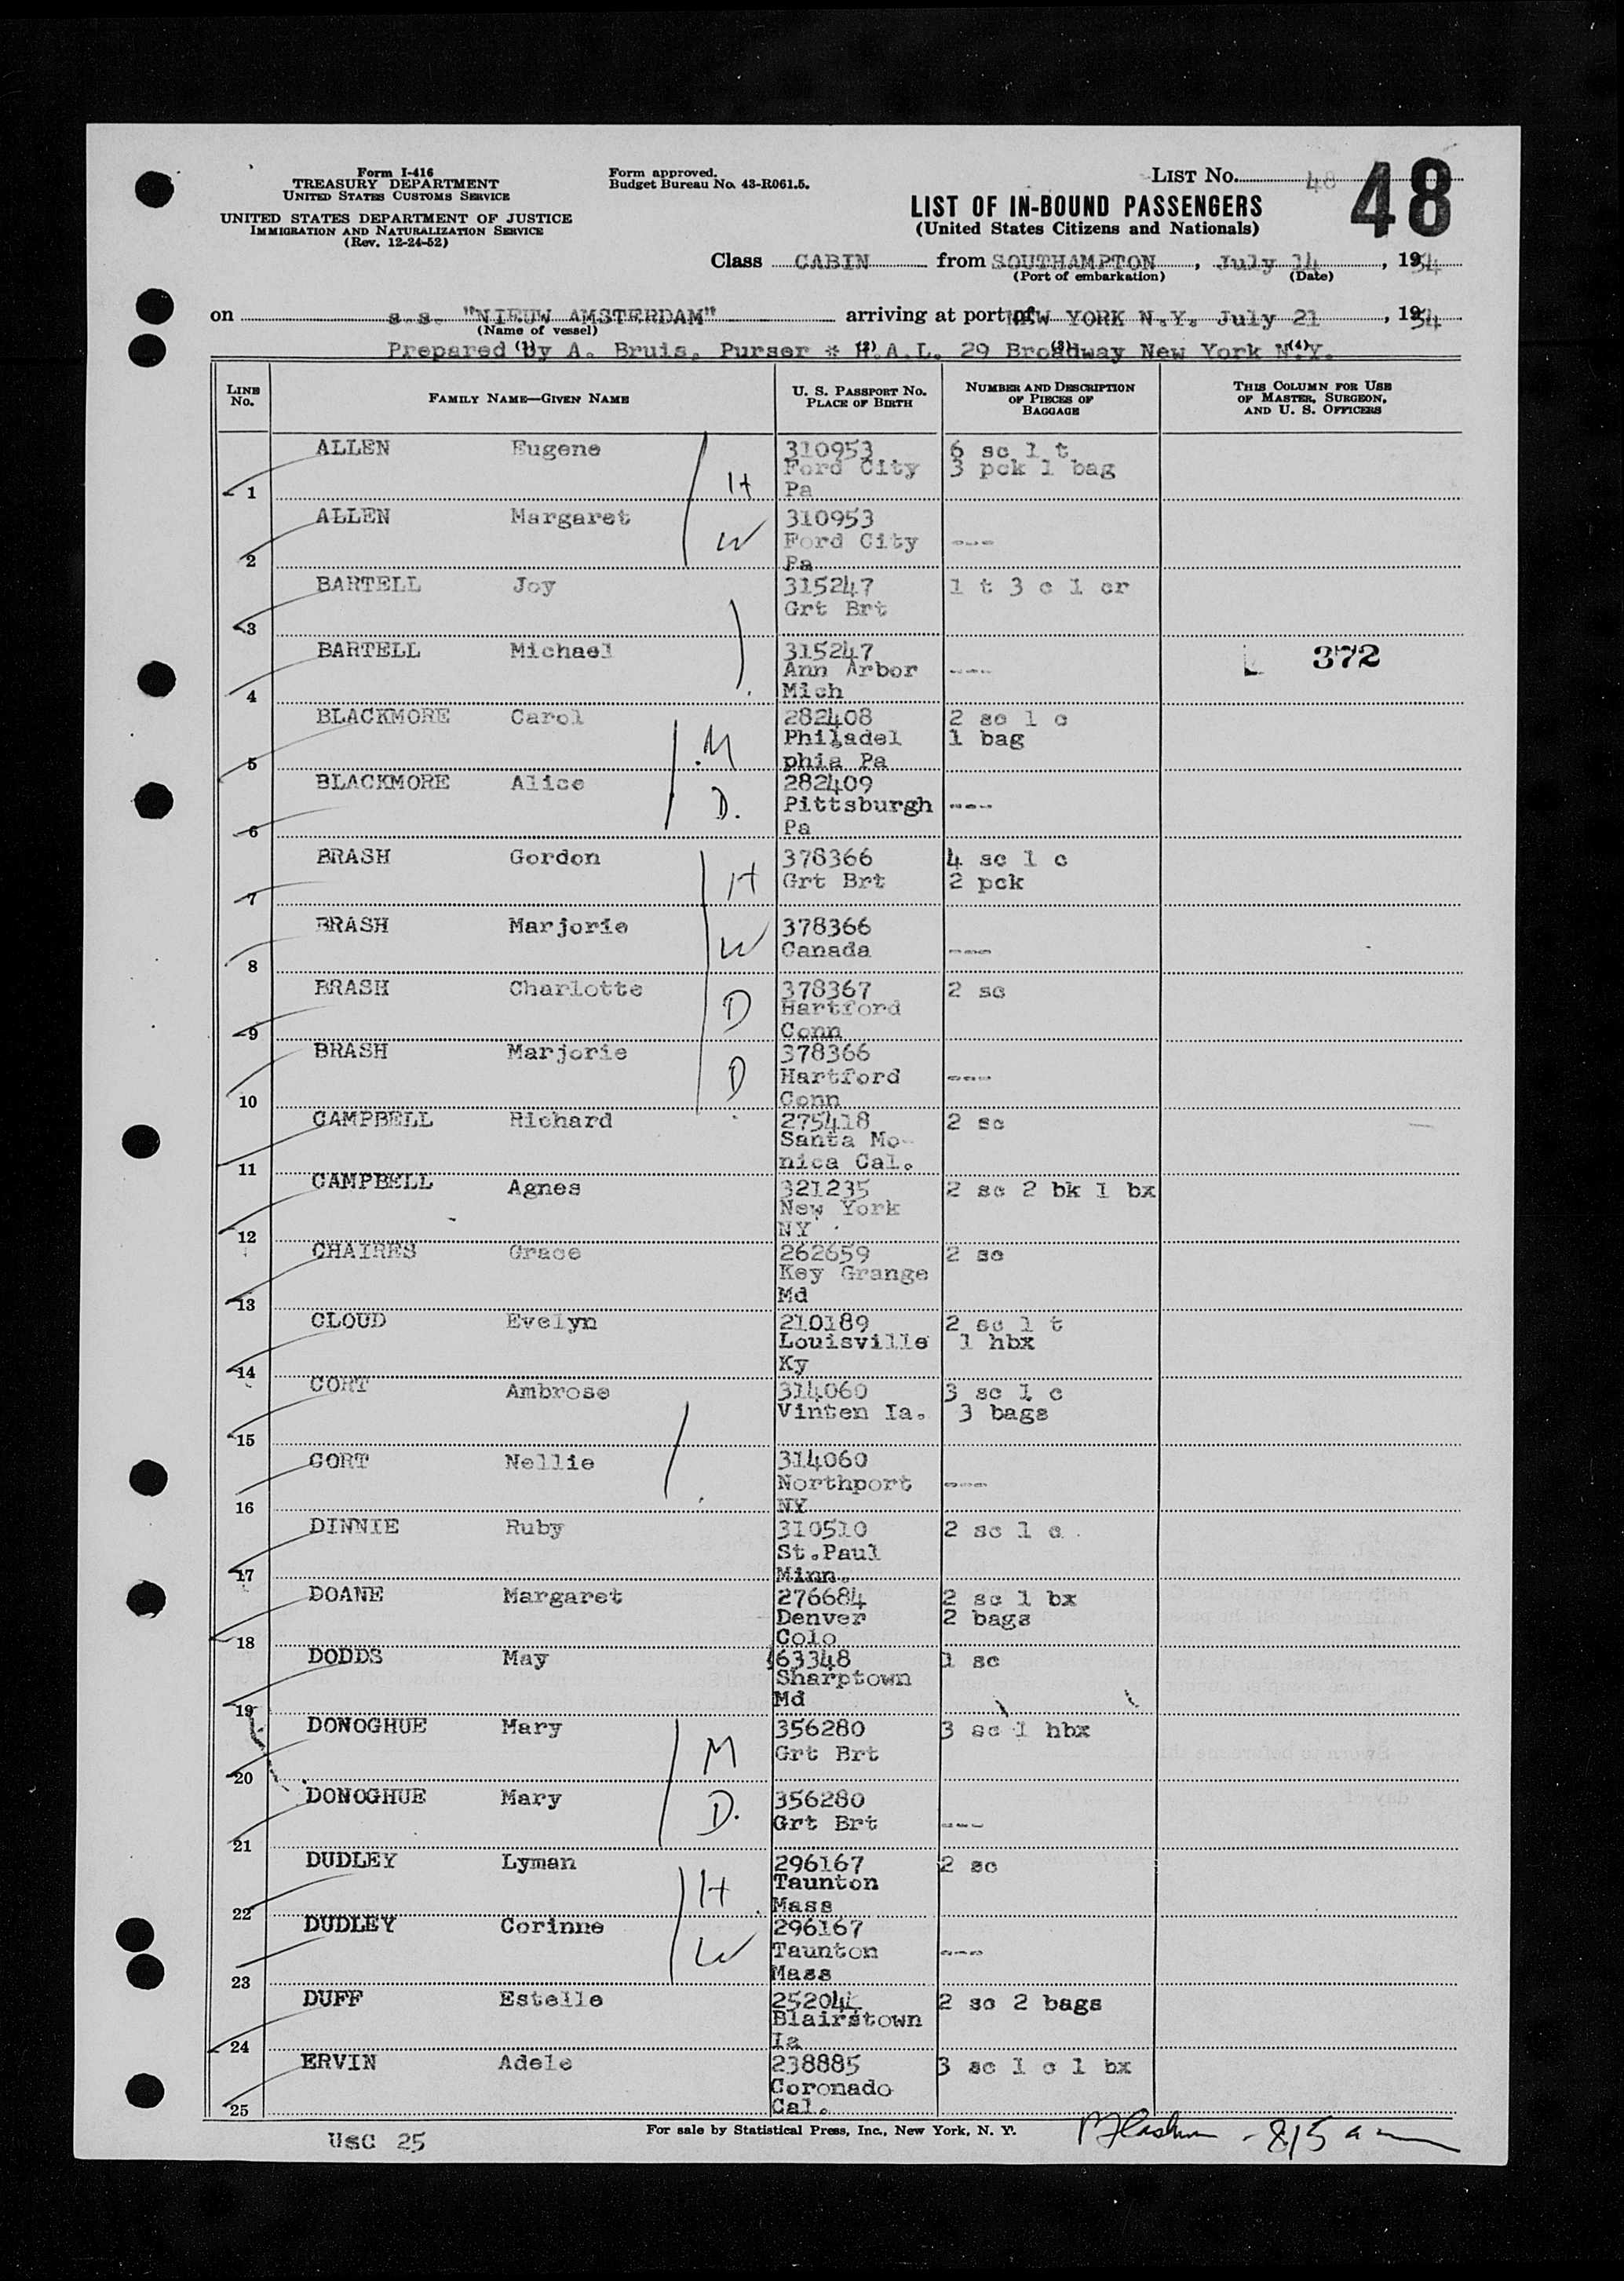 Form I-416
TREASURY DEPARTMENT
UNITED STATES CUSTOMS SERVICE
UNITED STATES DEPARTMENT OF JUSTICE
IMMIGRATION AND NATURALIZATION SERVICE
(Rev. 12-24-52)
Form approved.
Budget Bureau No. 43-R061.5.
LIST No. 48
48
LIST OF IN-BOUND PASSENGERS
(United States Citizens and Nationals)
Class CABIN from SOUTHAMPTON, July 14, 1954
(Port of embarkation) (Date)
on s.s. "NIEUW AMSTERDAM" arriving at port of NEW YORK N.Y. July 21, 1954
(Name of vessel)
Prepared by A. Bruis, Purser * H.A.L. 29 Broadway New York N.Y.
(1) (2) (3) (4)
LINE No. FAMILY NAME—GIVEN NAME U. S. PASSPORT No. PLACE OF BIRTH NUMBER AND DESCRIPTION OF PIECES OF BAGGAGE THIS COLUMN FOR USE OF MASTER, SURGEON, AND U. S. OFFICERS
ALLEN Eugene 310953 6 sc 1 t
Ford City 3 pck 1 bag
1 H Pa
ALLEN Margaret 310953
W Ford City ---
2 Pa
BARTELL Joy 315247 1 t 3 c 1 cr
Grt Brt
3
BARTELL Michael 315247 L 372
Ann Arbor ---
4 Mich
BLACKMORE Carol 282408 2 sc 1 c
M Philadel 1 bag
5 phia Pa
BLACKMORE Alice 282409
D. Pittsburgh ---
6 Pa
BRASH Gordon 378366 4 sc 1 c
H Grt Brt 2 pck
7
BRASH Marjorie 378366
W Canada ---
8
BRASH Charlotte 378367 2 sc
D Hartford
9 Conn
BRASH Marjorie 378366
D Hartford ---
10 Conn
CAMPBELL Richard 275418 2 sc
Santa Mo-
11 nica Cal.
CAMPBELL Agnes 321235 2 sc 2 bk 1 bx
New York
12 NY
CHAIRES Grace 262659 2 sc
Key Grange
13 Md
CLOUD Evelyn 210189 2 sc 1 t
Louisville 1 hbx
14 Ky
CORT Ambrose 314060 3 sc 1 c
Vinten Ia. 3 bags
15
CORT Nellie 314060
Northport ---
16 NY
DINNIE Ruby 310510 2 sc 1 c
St.Paul
17 Minn.
DOANE Margaret 276684 2 sc 1 bx
Denver 2 bags
18 Colo
DODDS May 63348 1 sc
Sharptown
19 Md
DONOGHUE Mary 356280 3 sc 1 hbx
M Grt Brt
20
DONOGHUE Mary 356280
D. Grt Brt ---
21
DUDLEY Lyman 296167 2 sc
H Taunton
22 Mass
DUDLEY Corinne 296167
W Taunton ---
23 Mass
DUFF Estelle 252044 2 sc 2 bags
Blairstown
24 Ia
ERVIN Adele 238885 3 sc 1 c 1 bx
Coronado
25 Cal.
For sale by Statistical Press, Inc., New York, N. Y.
USC 25
- 815 am